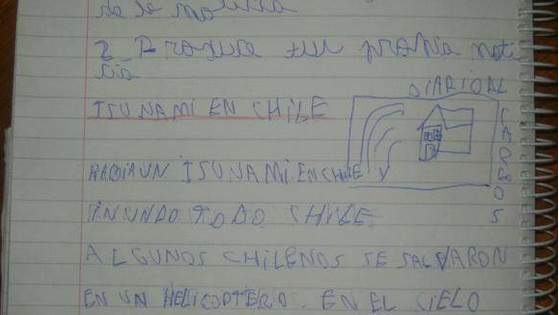 de se noticia
2. Produce tu propia noti
cia
DIARIO AL
TSUNAMI EN CHILE
HABIA UN TSUNAMI EN CHILE
INUNDO TODO CHILE
ALGUNOS CHILENOS SE SALVARON
EN UN HELICOPTERO. EN EL CIELO